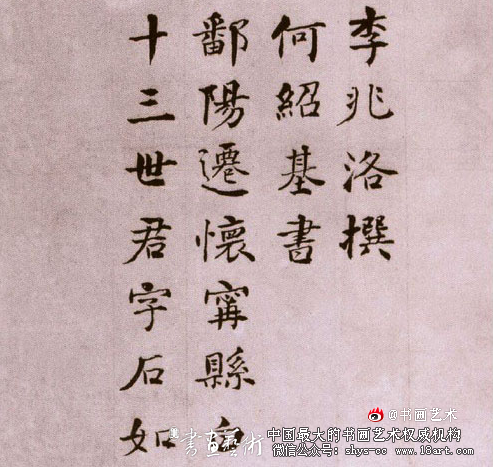 李兆洛撰
何紹基書
鄱陽遷懷甯縣
十三世君字石如
書畫藝術
@书画艺术
中国最大的书画艺术权威机构
微信公众号：shys-cc www.18art.com